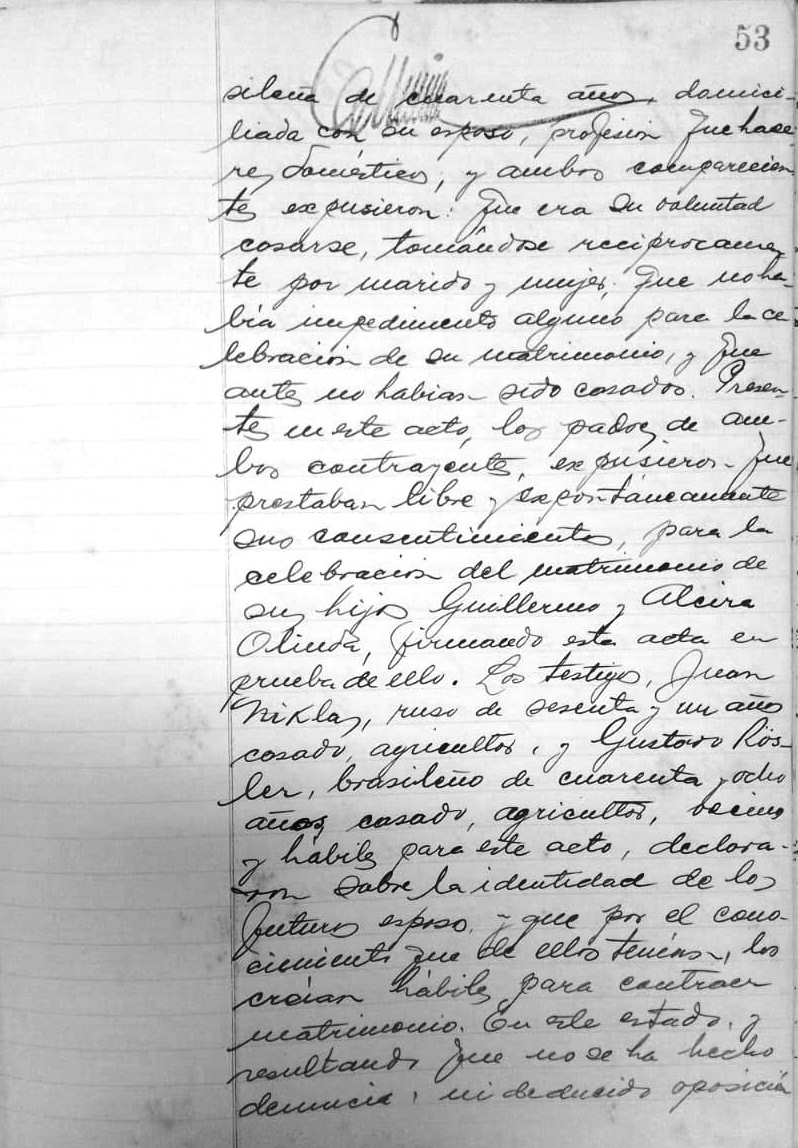 53
sileña de cuarenta años, domici-
liada con su esposo, profesión quehace-
res domésticos, y ambos comparecien
tes expusieron: que era su voluntad
casarse, tomándose reciprocamen
te por marido y mujer, que no ha-
bía impedimento alguno para la ce
lebración de su matrimonio, y que
antes no habian sido casados. Presen-
tes en este acto, los padres de am-
bos contrayentes, expusieron que
prestaban libre y espontáneamente
sus consentimientos, para la
celebración del matrimonio de
sus hijos Guillermo y Alcira
Olinda, firmando esta acta en
prueba de ello. Los testigos, Juan
Niklas, ruso de sesenta y un años
casado, agricultor, y Gustavo Rös-
ler, brasileño de cuarenta y ocho
años, casado, agricultor, vecinos
y hábiles para este acto, declara-
ron sobre la identidad de los
futuros esposos y que por el cono-
cimiento que de ellos tenían, los
creían hábiles para contraer
matrimonio. En este estado, y
resultando que no se ha hecho
denuncia, ni deducido oposición